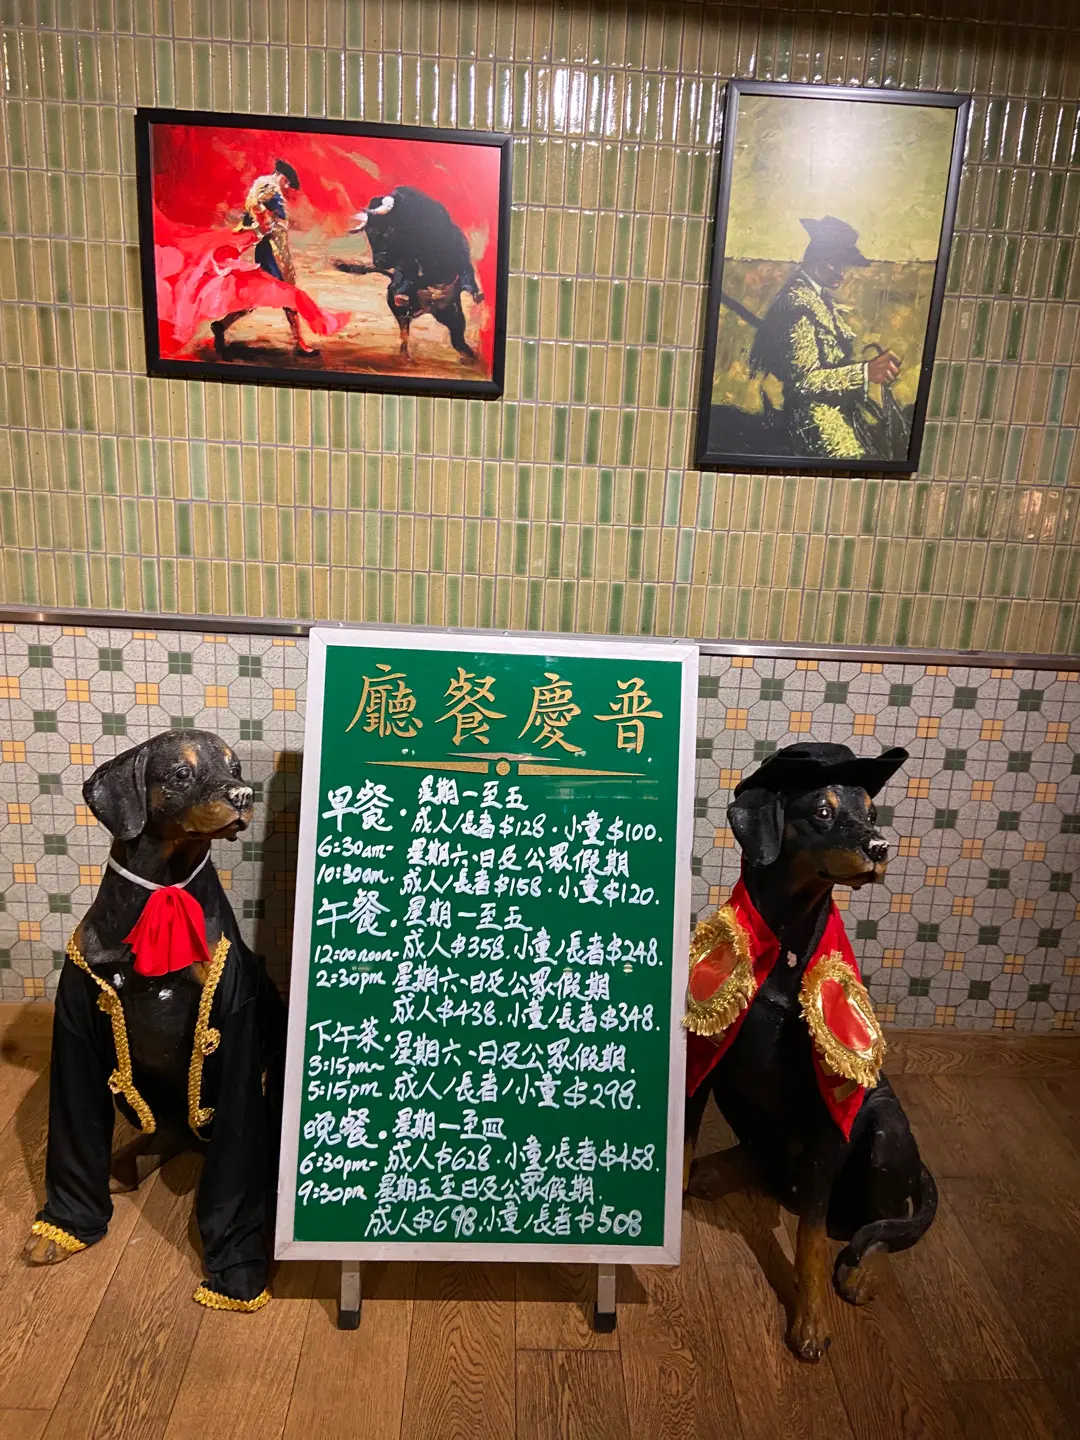 廳餐慶普
早餐. 星期一至五
成人/長者$128.小童$100.
6:30am- 星期六、日及公眾假期
10:30am. 成人/長者$158.小童$120.
午餐. 星期一至五
12:00noon- 成人$358.小童/長者$248.
2:30pm 星期六、日及公眾假期
成人$438.小童/長者$348.
下午茶. 星期六、日及公眾假期.
3:15pm~
5:15pm 成人/長者/小童$298.
晚餐. 星期一至四
6:30pm- 成人$628.小童/長者$458.
9:30pm 星期五至日及公眾假期.
成人$698.小童/長者$508